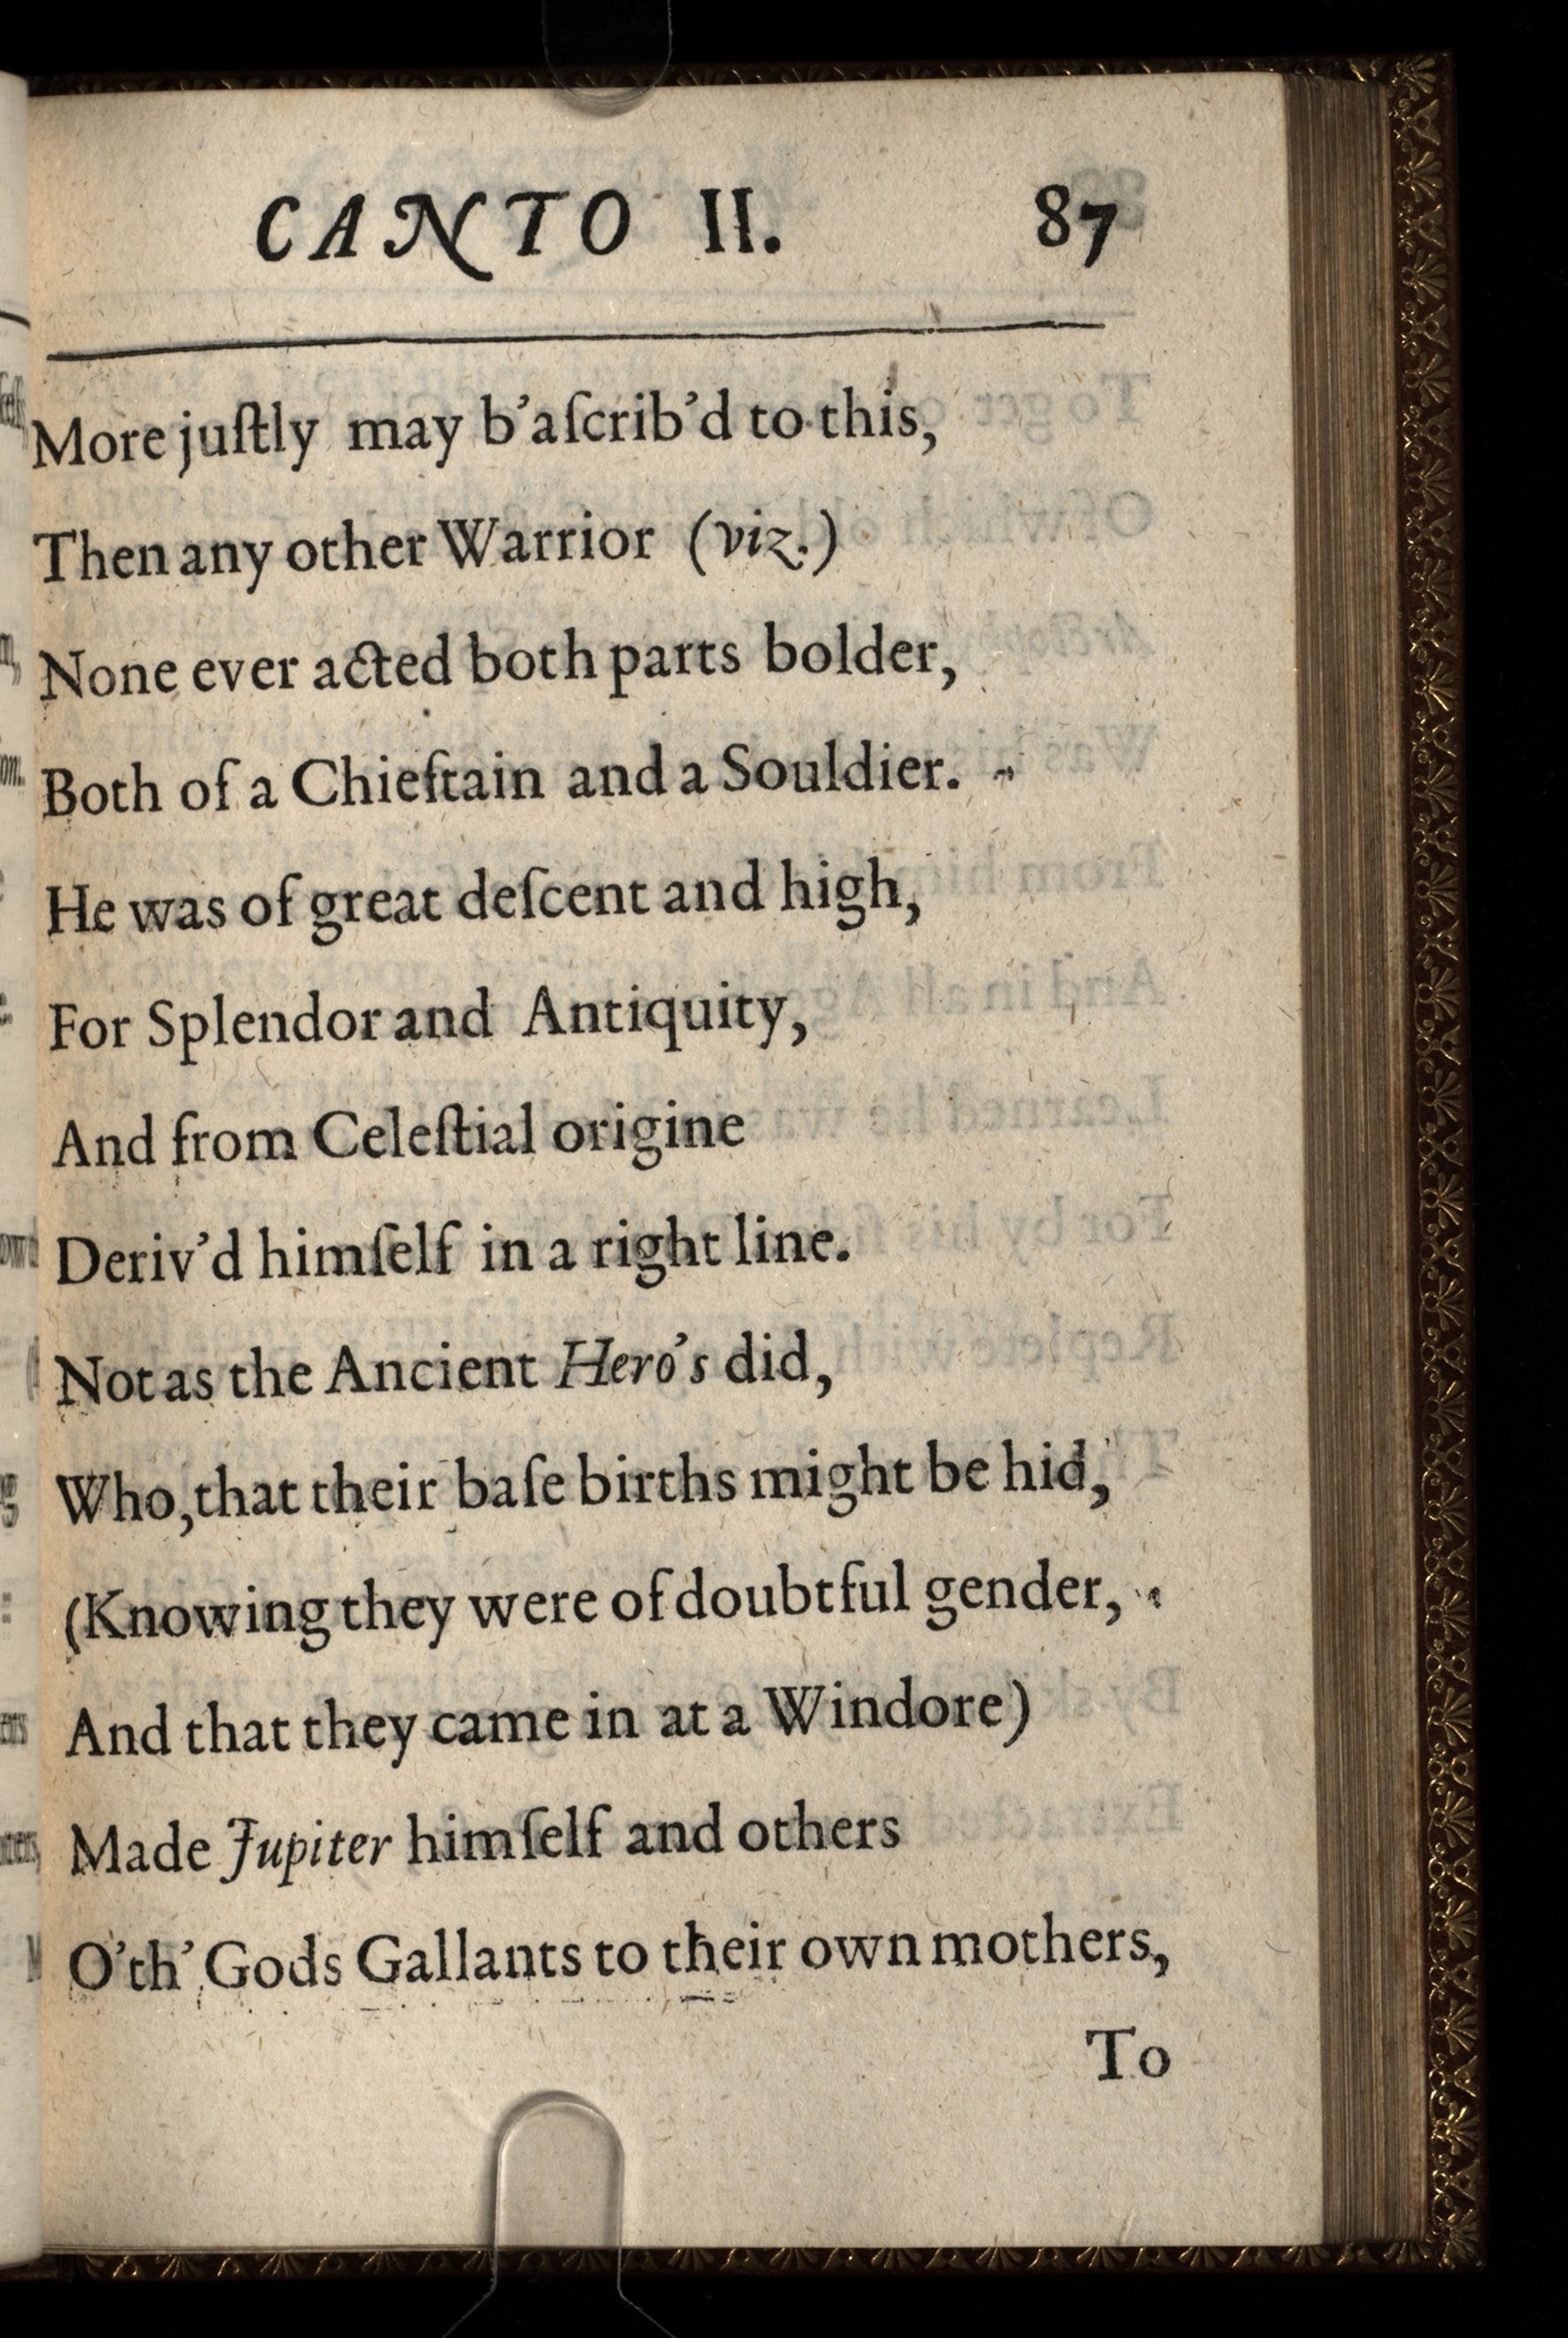 CANTO II. 87
More juſtly may b'aſcrib'd to this,
Then any other Warrior (viz.)
None ever acted both parts bolder,
Both of a Chieftain and a Souldier.
He was of great deſcent and high,
For Splendor and Antiquity,
And from Celeſtial origine
Deriv'd himſelf in a right line.
Not as the Ancient Hero's did,
Who, that their baſe births might be hid,
(Knowing they were of doubtful gender,
And that they came in at a Windore)
Made Jupiter himſelf and others
O'th' Gods Gallants to their own mothers,
To